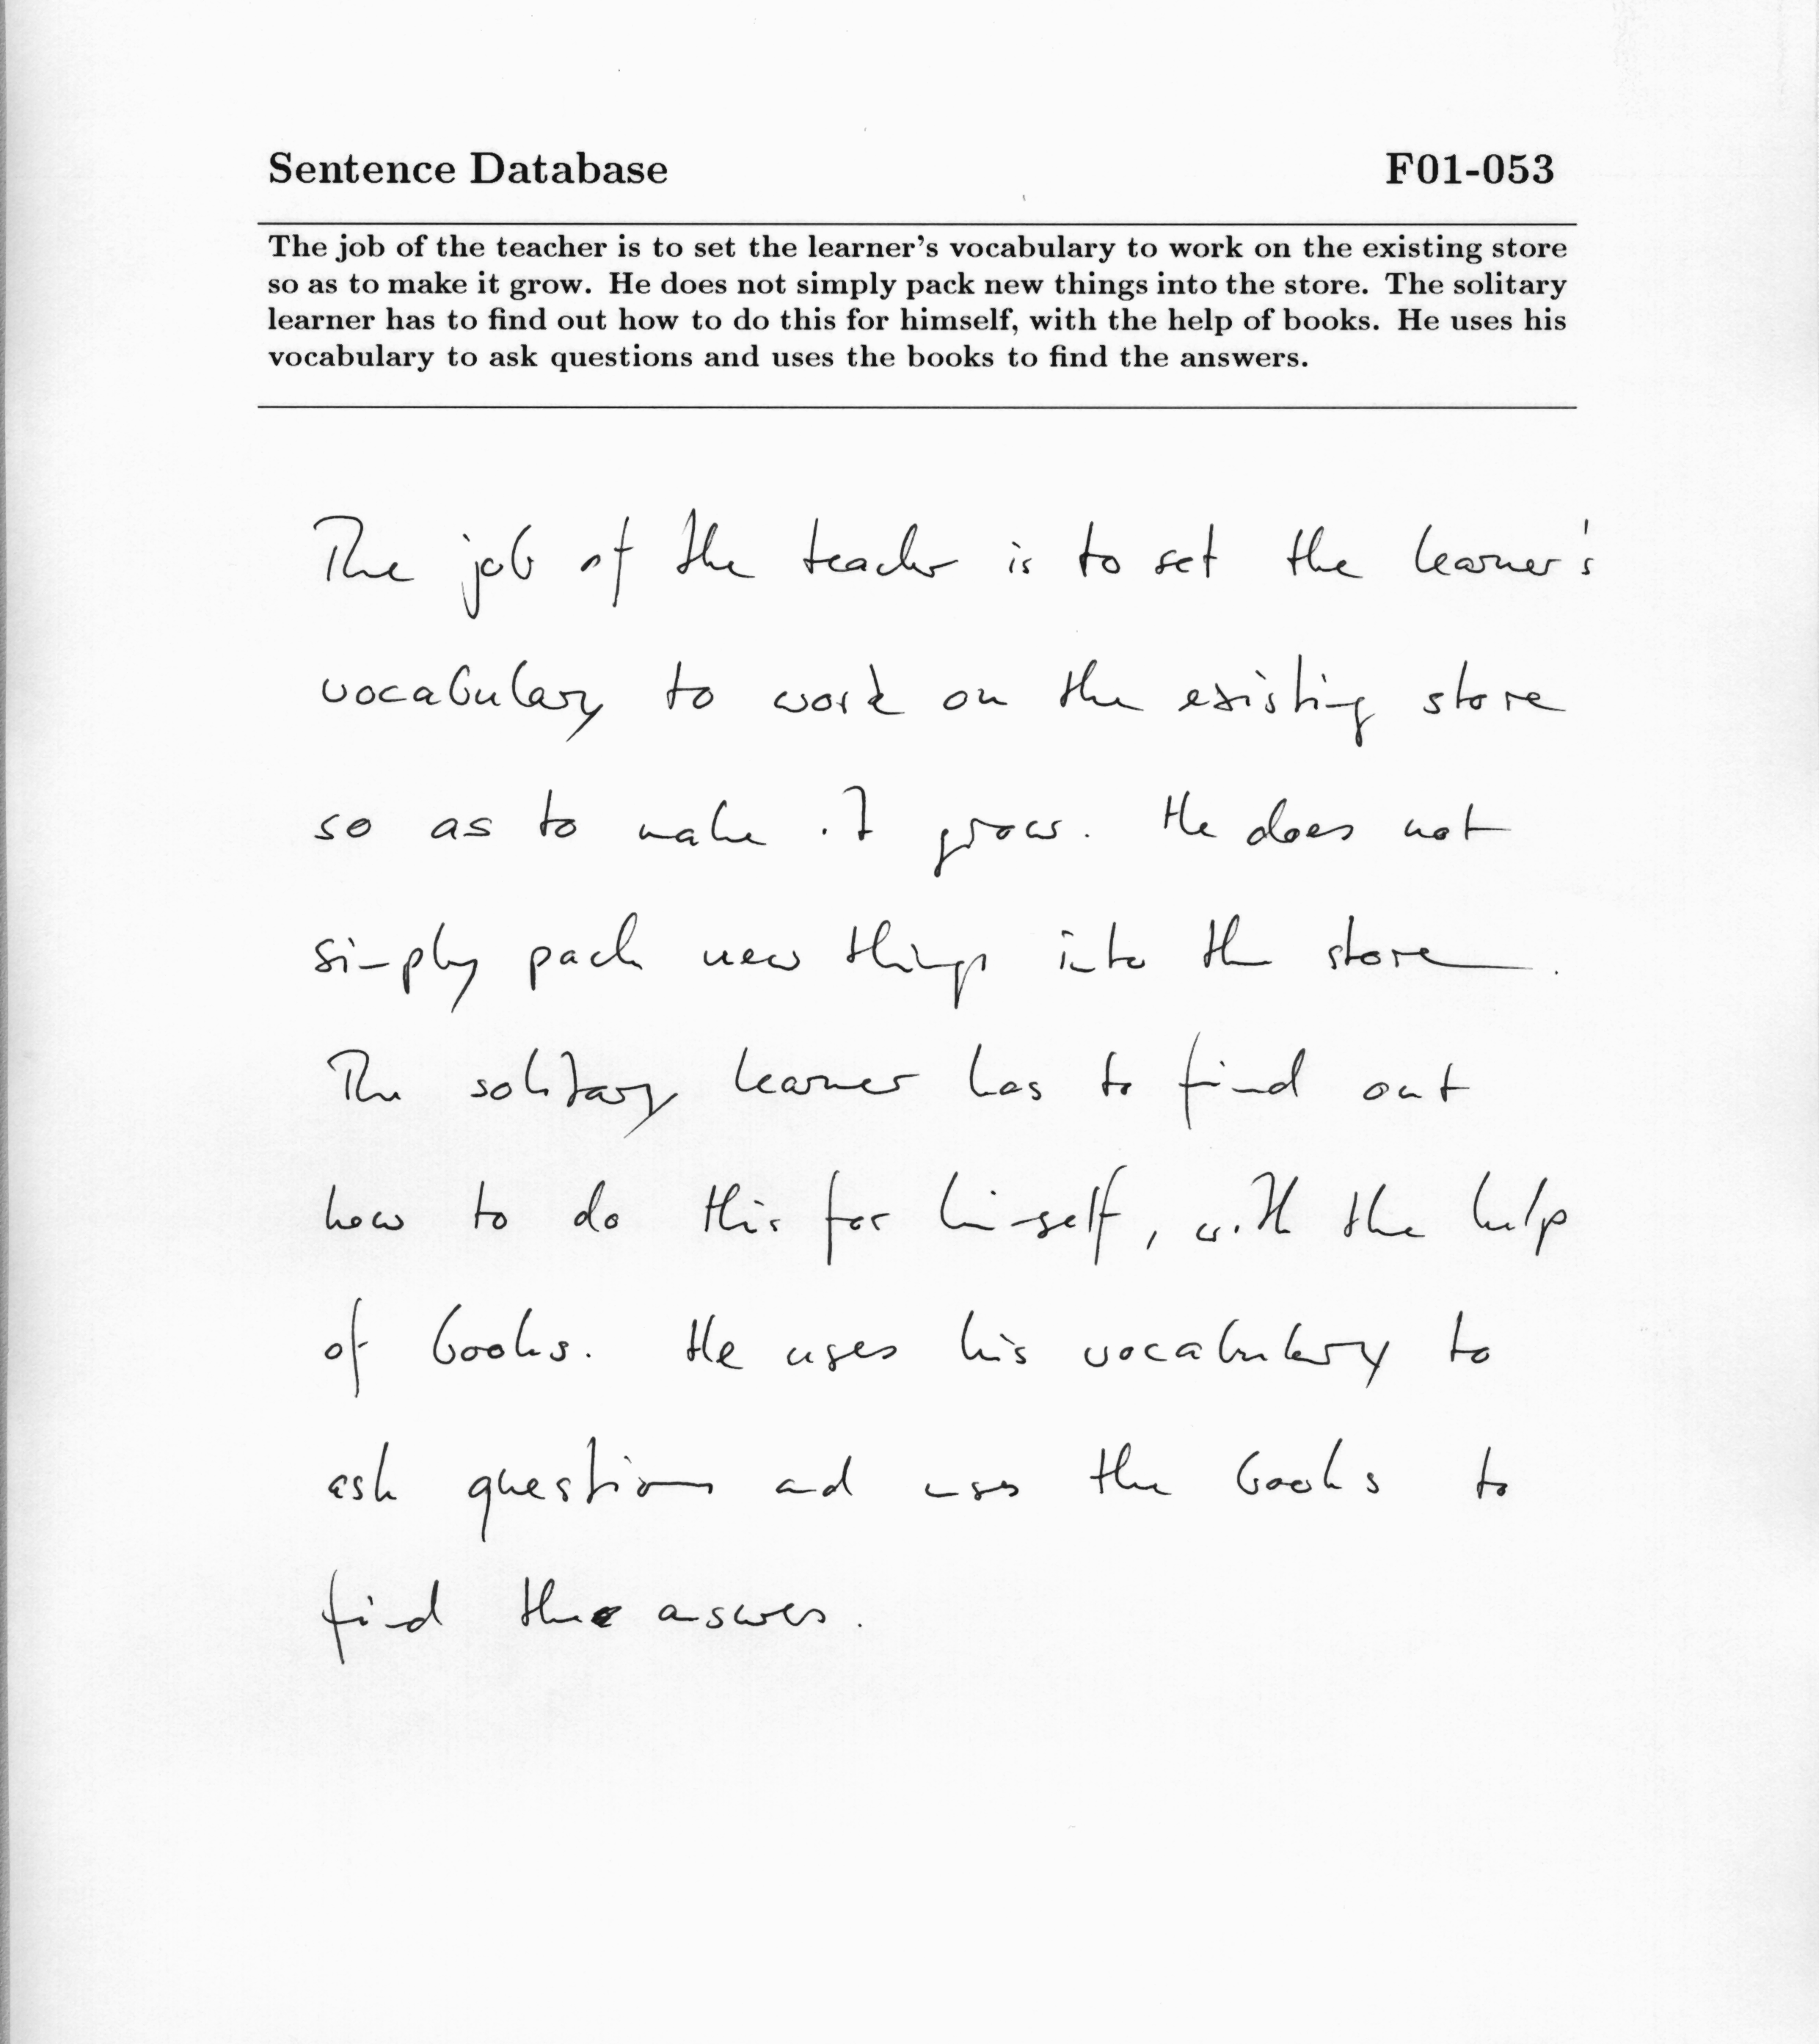 Sentence Database F01-053
The job of the teacher is to set the learner's vocabulary to work on the existing store
so as to make it grow. He does not simply pack new things into the store. The solitary
learner has to find out how to do this for himself, with the help of books. He uses his
vocabulary to ask questions and uses the books to find the answers.
The job of the teacher is to set the learner's
vocabulary to work on the existing store
so as to make it grow. He does not
simply pack new things into the store.
The solitary learner has to find out
how to do this for himself, with the help
of books. He uses his vocabulary to
ask questions and uses the books to
find the answers.